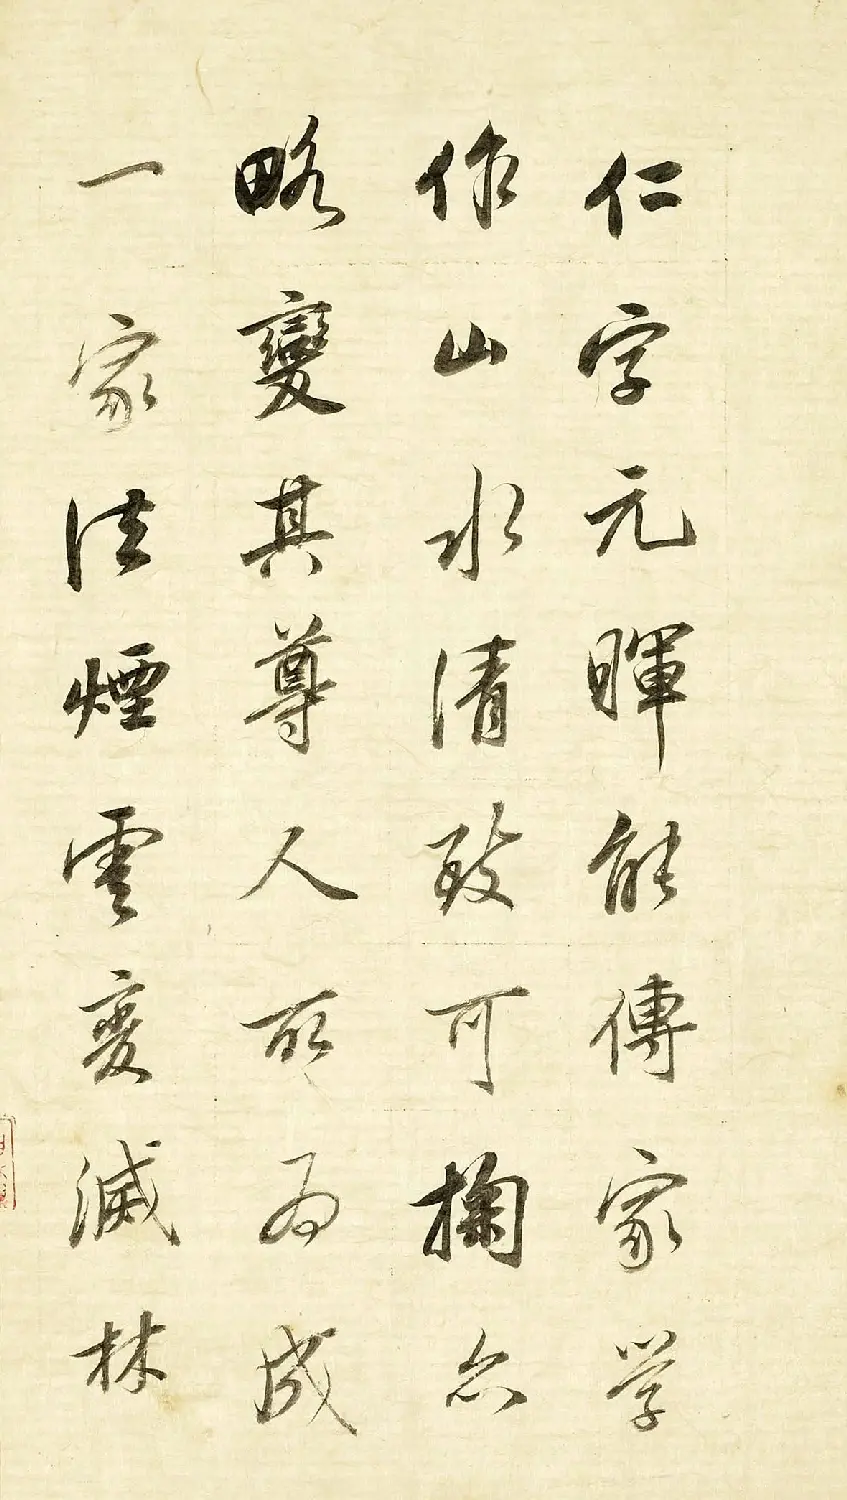 仁字元暉能傳家学
作山水清致可掬亦
略變其尊人所为成
一家法煙雲变滅林